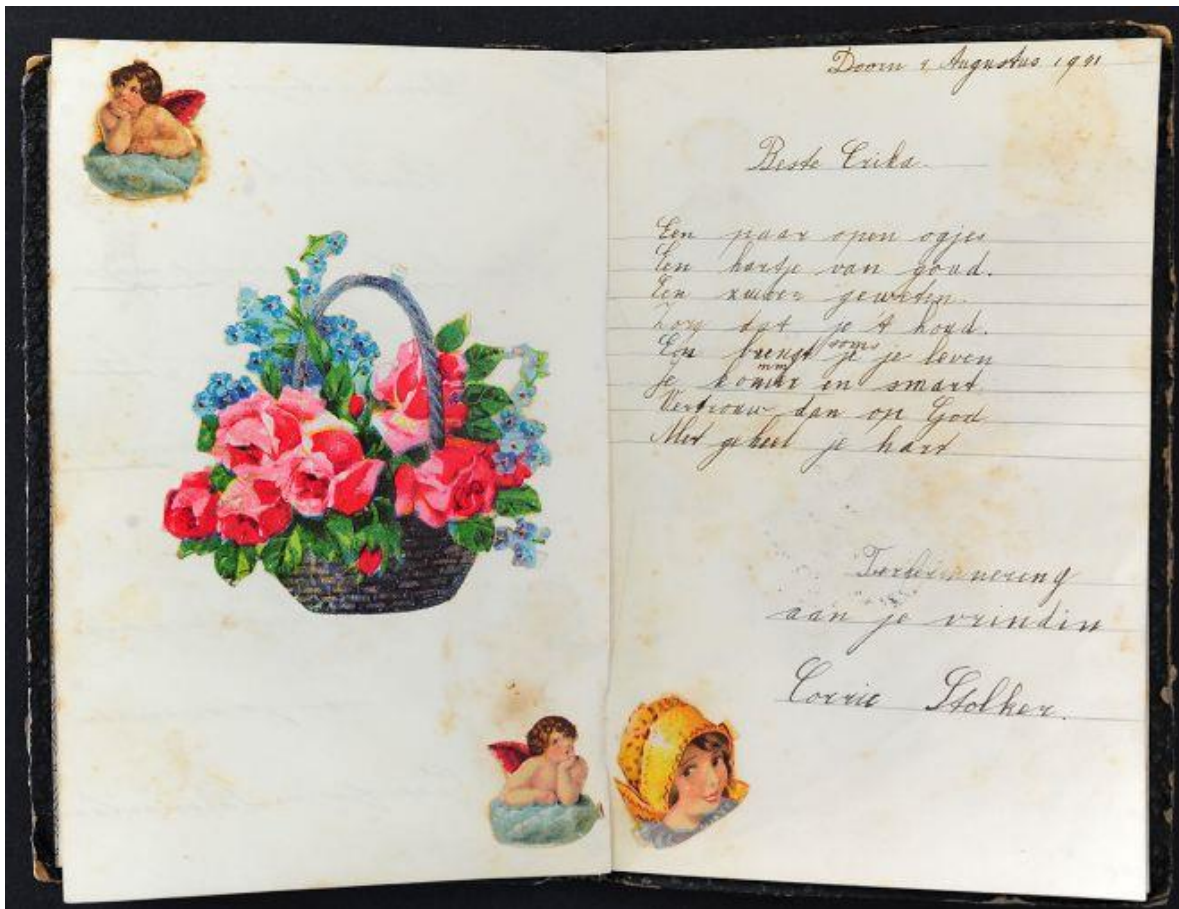 Doorn 1 Augustus 1941
Beste Erika.
Een paar open ogjes
Een hartje van goud.
Een zuiver geweten.
Zorg dat je 't houd.
En brengt soms je je leven
je kommer en smart
Vertrouw dan op God
Met geheel je hart
Ter herinnering
aan je vrindin
Corrie Stolker.